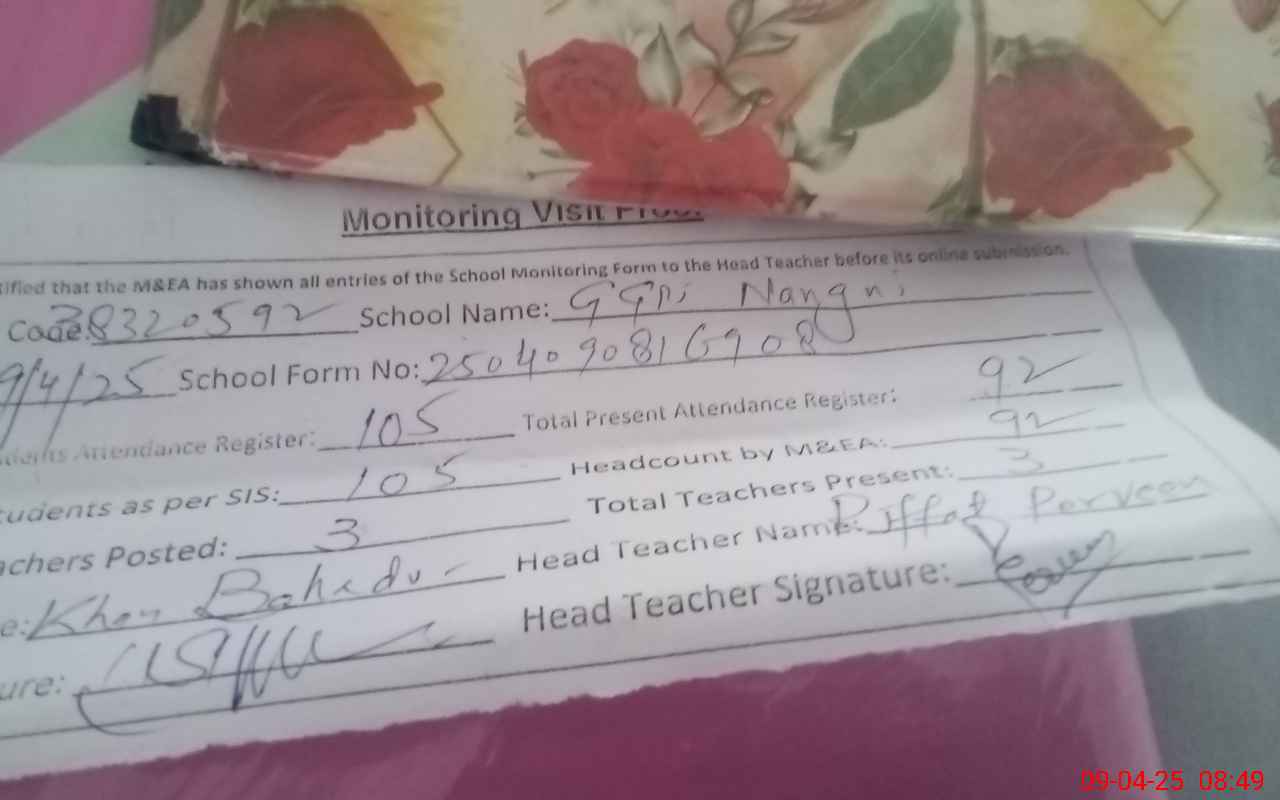 Monitoring Visit Proof
tified that the M&EA has shown all entries of the School Monitoring Form to the Head Teacher before its online submission.
Code: 38320592 School Name: GGPS Nangni
9/4/25 School Form No: 2504090816908
dents Attendance Register: 105 Total Present Attendance Register: 92
tudents as per SIS: 105 Headcount by M&EA: 92
achers Posted: 3 Total Teachers Present: 3
e: Khan Bahadur Head Teacher Name: Riffat Parveen
ure: Head Teacher Signature:
09-04-25 08:49